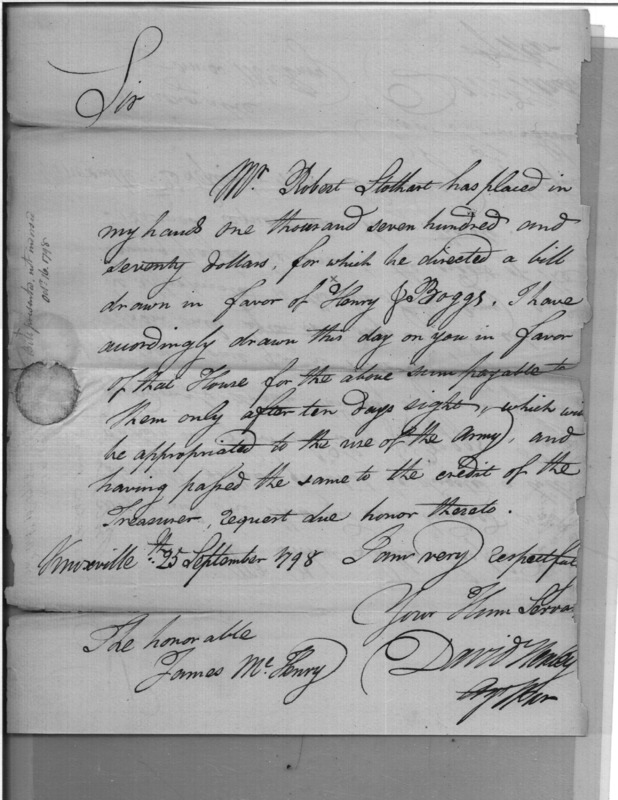 Sir
Mr. Robert Stothart has placed in
my hands one thousand seven hundred and
seventy dollars, for which he directed a bill
drawn in favor of Henry & Boggs. I have
accordingly drawn this day on you in favor
of that House for the above sum payable to
them only after ten days sight, which wi
be appropriated to the use of the Army, and
having passed the same to the credit of the
Treasurer, request due honor thereto.
Knoxville 25th September 1798 I am very respectful
Your Hum Serva
David Henley
The honorable
James McHenry
not
Oct 16. 1798